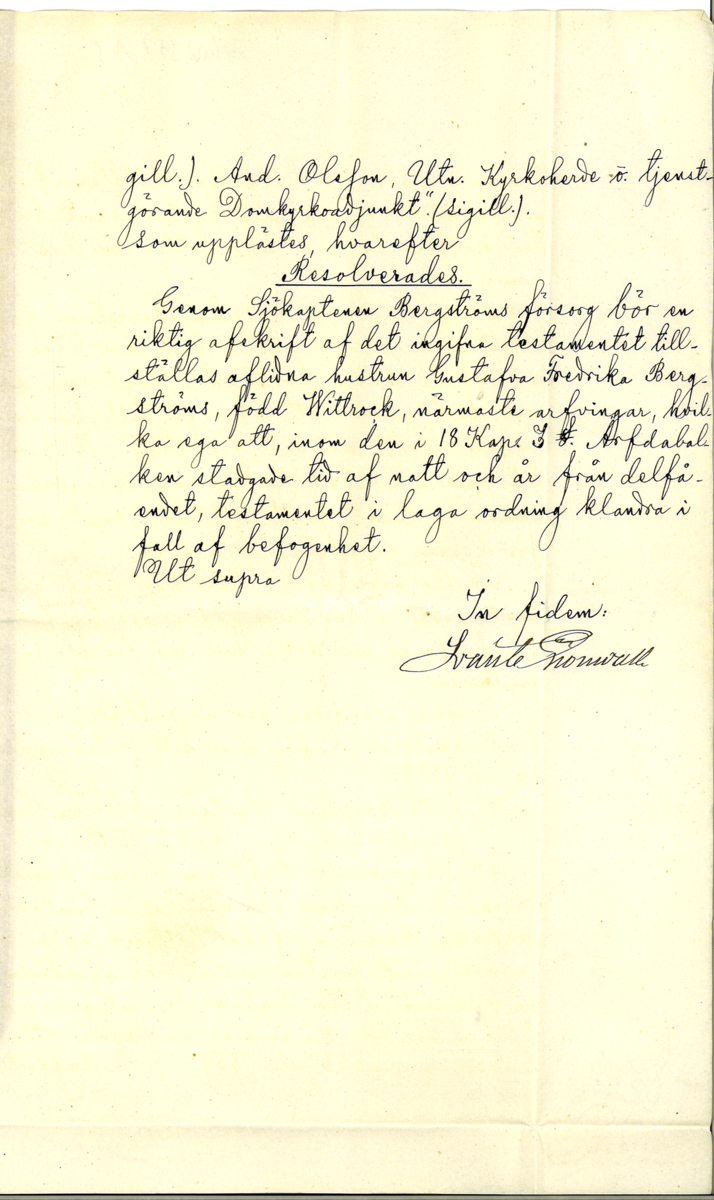 gill.). And. Olsson, Utn. Kyrkoherde o. tjenst-
görande Domkyrkoadjunkt". (Sigill.).
som upplästes, hvarefter
Resolverades.
Genom Sjökaptenen Bergströms försorg bör en
riktig afskrift af det ingifna testamentet till-
ställas aflidna hustrun Gustafva Fredrika Berg-
ströms, född Wittrock, närmaste arfvingar, hvil-
ka ega att, inom den i 18 Kap. 3 §. Ärfdabal-
ken stadgade tid af natt och år från delfå-
endet, testamentet i laga ordning klandra i
fall af befogenhet.
Ut supra
In fidem:
Svante